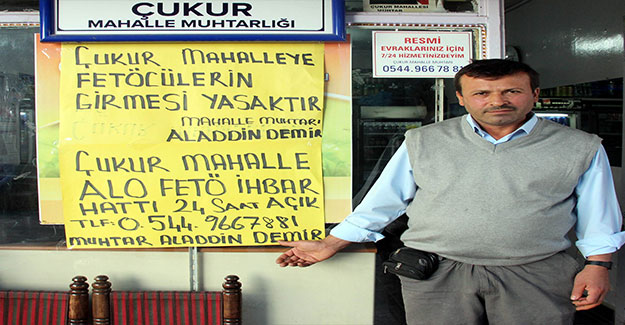 ÇUKUR
MAHALLE MUHTARLIĞI
ÇUKUR MAHALLEYE
FETÖCÜLERİN
GİRMESİ YASAKTIR
MAHALLE MUHTARI
ALADDİN DEMİR
ÇUKUR MAHALLE
ALO FETÖ İHBAR
HATTI 24 SAAT AÇIK
TLF: 0.544.9667881
MUHTAR ALADDİN DEMİR
ÇUKUR MAHALLESİ
MUHTAR
RESMİ
EVRAKLARINIZ İÇİN
7/24 HİZMETİNİZDEYİM
ÇUKUR MAHALLE MUHTARI
0544.966 78 81